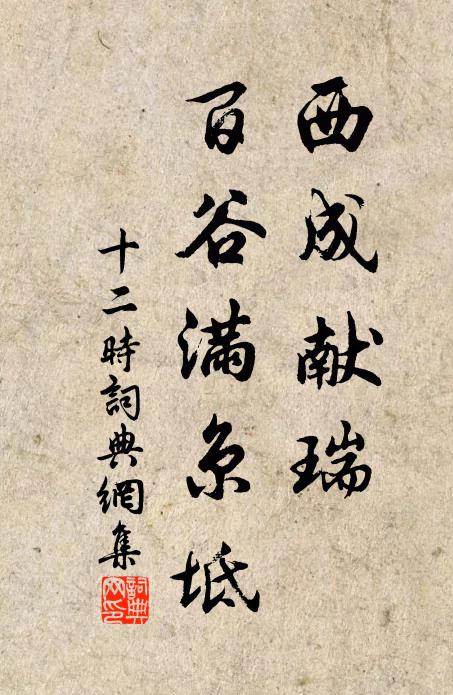 西成献瑞
百谷满京坻
十二時詞典網集
詞典網印